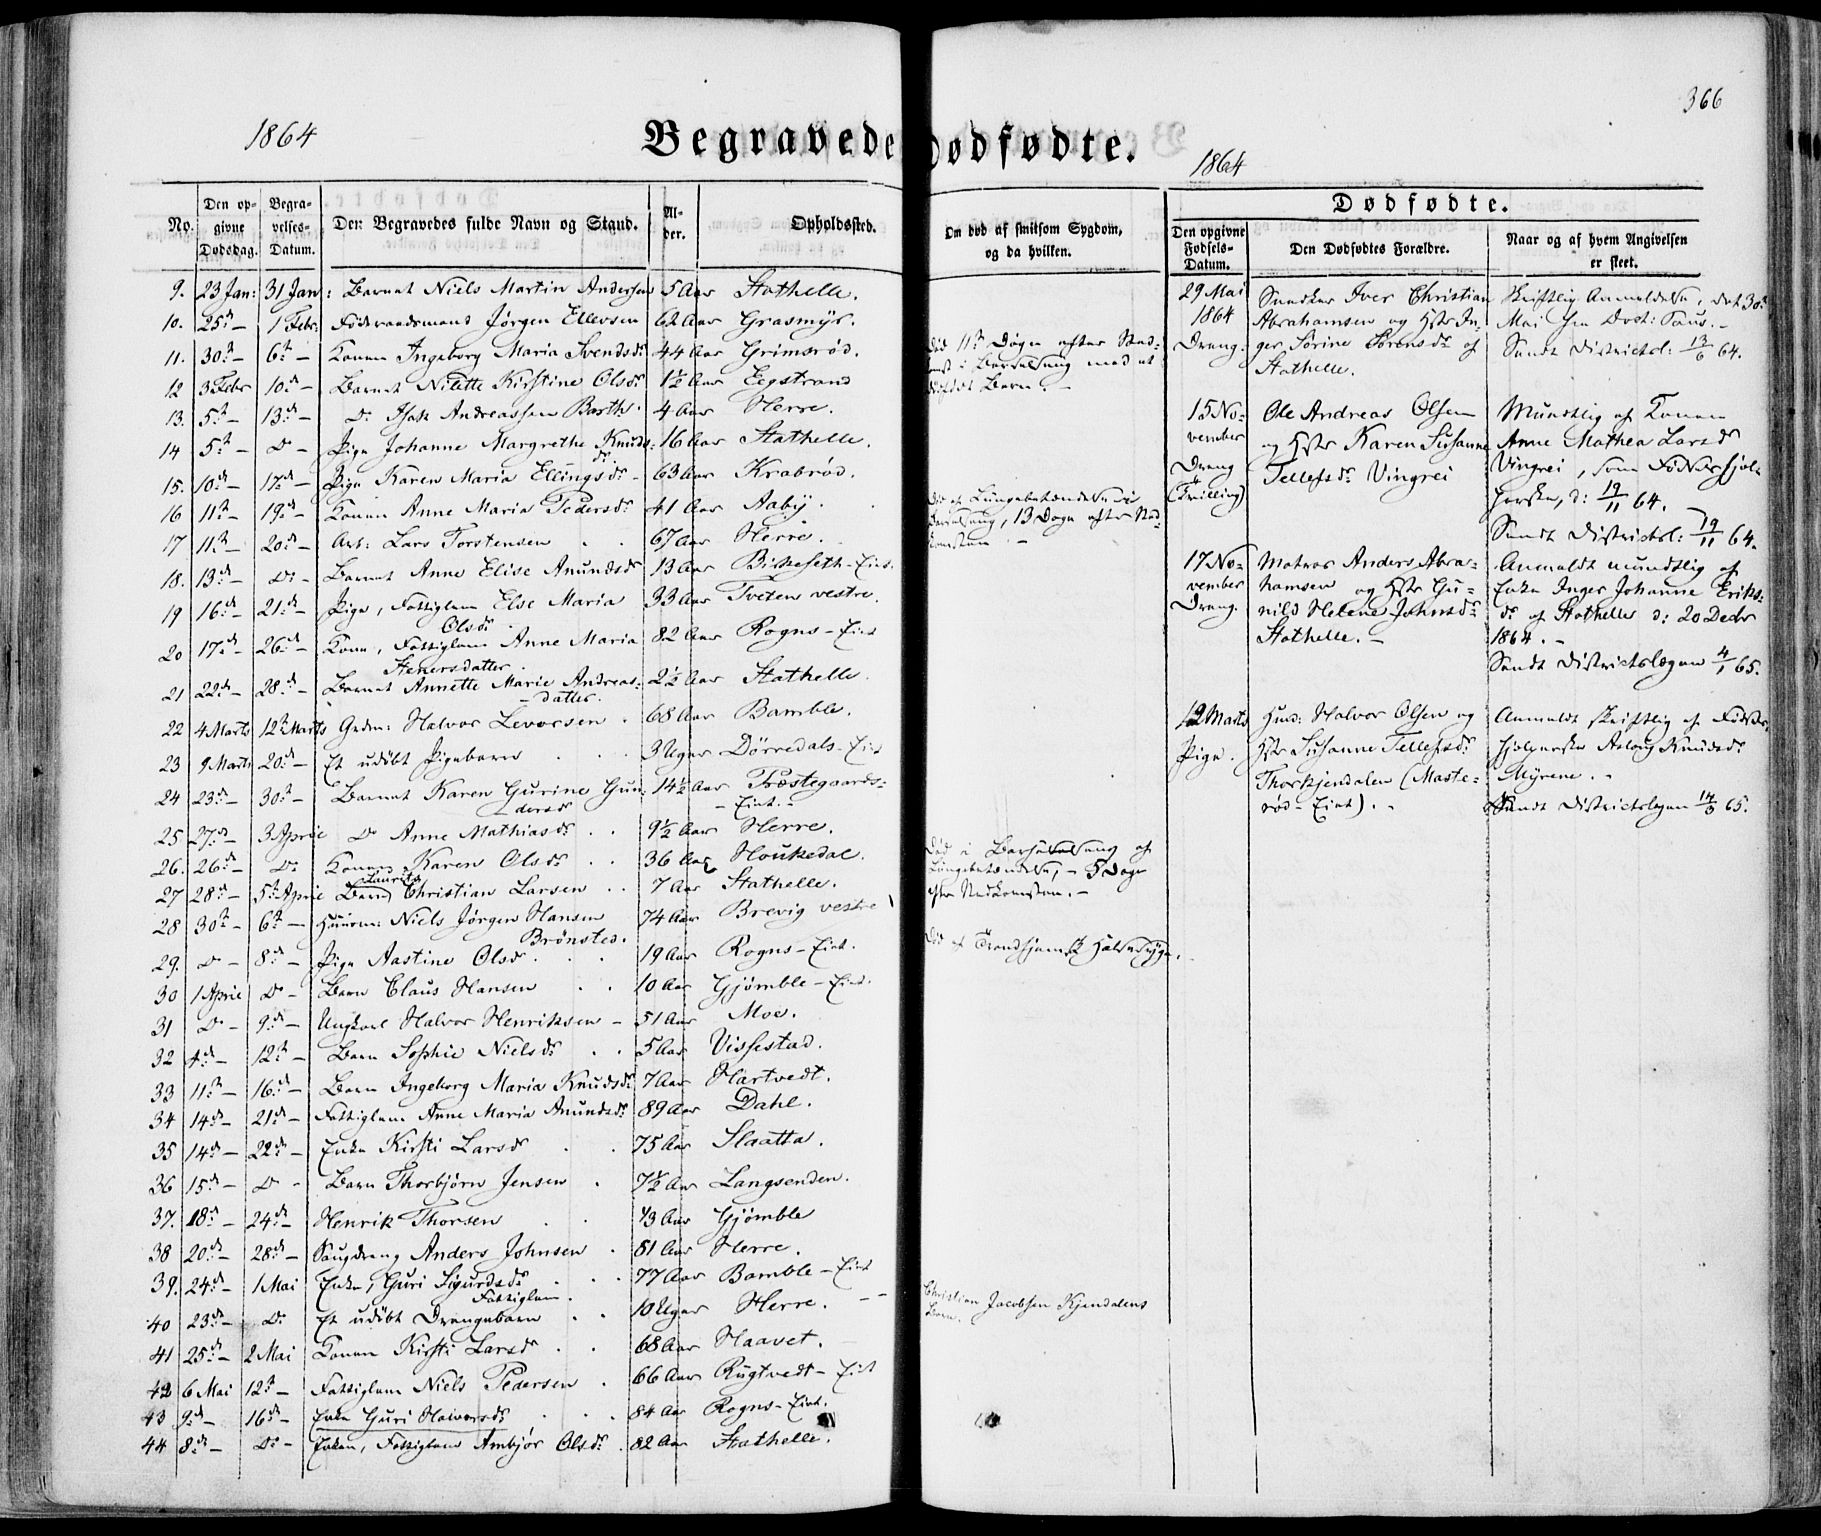 1864
Begravede
No.
Den opgivne Dødsdag.
Begravelses-Datum.
Den Begravedes fulde Navn og Stand.
Alder.
Opholdssted.
9. 23 Jan: 31 Jan: Barnet Niels Martin Andersen 5 Aar Stathelle.
10. 25de – 1 Febr: Føderaadsmand Jørgen Ellevsen 62 Aar Grasmyr.
11. 30te – 6te – Konen Ingeborg Maria Svendsdr 44 Aar Grimsrød.
12 3 Febr 10de – Barnet Nilette Kirstine Olsdr 1½ Aar Eegstrand
13. 5te – 13de – Do Isak Andreassen Barth. 4 Aar Herre.
14 5te – Do – Pige Johanne Margrethe Knuds: 16 Aar Stathelle.
dr
15. 10de – 17de – Pige Karen Maria Ellingsdr – 63 Aar Krabrød.
16 11te – 19de – Konen Anne Maria Pedersdr 41 Aar Aaby.
17 11te – 20de – Arb: Lars Torstensen 67 Aar Herre.
18. 13de – Do – Barnet Anne Elise Anundsdr 13 Aar Bikseth-Eiet.
19 16de – 21de – Pige, Fattiglem Else Maria 33 Aar Tveten vestre.
Olsdr
20 17de – 26de – Kone, Fattiglem Anne Maria 82 Aar Rogns-Eiet
Stenersdatter.
21 22de – 28de – Barnet Annette Marie Andreas- 2½ Aar Stathelle.
– datter.
22 4 Marts 12te Marts Grdm: Halvor Levorsen. 68 Aar Bamble.
23 9 Marts 20de – Et udøbt Pigebarn 3 Uger Dørredals-Eiet
24 23de – 30te – Barnet Karen Gurine Gun- 14½ Aar Præstegaards-
dersdr – Eiet. –
25 27de – 3 April Do Anne Mathiasdr 9½ Aar Herre.
26. 26de – Do Konen Karen Olsdr 36 Aar Houkedal.
27 28de – 5te April Barnet Laurits Christian Larsen 7 Aar Stathelle.
28 30te – 6te – Huusm: Niels Jørgen Hansen 74 Aar Brevig vestre
Brønsted.
29. Do – 8de – Pige Aastine Olsdr 19 Aar Rogns-Eiet.
30 1 April Do – Barn Claus Hansen 10 Aar Gjømble-Eiet.
31 Do – 9de – Ungkarl Halvor Henriksen – 51 Aar Moe.
32 4de – 12te – Barn Sophie Nielsdr 5 Aar Vissestad.
33 11te – 16de – Barn Ingeborg Maria Knudsdr 7 Aar Hartvedt.
34 14de – 21de – Fattiglem Anne Maria Anundsdr 89 Aar Dahl.
35 14de – 22de – Enke Kirsti Larsdr 75 Aar Slaatta.
36 15de – Do – Barn Thorbjørn Jensen 7½ Aar Langsenden.
37. 18de – 24de – Henrik Thorsen 43 Aar Gjømble
38 20de – 28de – Anders Johnsen 81 Aar Herre.
39. 24de – 1 Mai Enke, Guri Sigurdsdr 77 Aar Bamble-Eiet
Fattiglem.
40 23de – Do Et udøbt Drengebarn 10 Uger Herre.
41 25de – 2 Mai Konen Kirsti Larsdr 68 Aar Haavet.
42 6 Mai 12te – Fattiglem Niels Pedersen 66 Aar Rugtvedt-Eiet
43 9de – 16de – Enke Guri Halvorsdr 84 Aar Rogns-Eiet.
44 8de – Do – Enken, Fattiglem Ambjør Olsdr 82 Aar Stathelle.
366
Dødfødte.
1864
Om død af smitsom Sygdom, og da hvilken.
død 11te Døgn efter Ned-
komst i Barselseng med et
dødfødt Barn. –
Død af Lungebetændelse i
Barselseng, 13 Døgn efter Ned-
komsten –
Død i Barselseng af
Lungebetændelse, – 5 Døgn
efter Nedkomsten. –
Død af Halssyge.
Christian Jacobsen Kjendalens
Barn.
Dødfødte.
Den opgivne Fødsels-Datum.
Den Dødfødtes Forældre.
Naar og af hvem Angivelsen er skeet.
29 Mai Iver Christian Skriftlig Anmeldelse, dat 30te
1864 Abrahamsen og Hstr In- Mai fra Doct: Paus. –
Dreng. ger Sørine Sørensdr af Sendt Districtsl: 13/6 64.
Stathelle.
15 No- Ole Andreas Olsen Mundtlig af Konen
vember og Hstr Karen Susanne Anne Mathea Larsdr
Dreng Tellefsdr Vingrei Vingrei, som Fødselshjel-
(Tvilling) perske, d: 19/11 64.
Sendt Districtsl: 19/11 64.
17 No- Matros Anders Abra- Anmeldt mundtlig af
vember hamsen og Hstr Gu- Enke Inger Johanne Eriks-
Dreng. nild Helene Johnsdr dr af Stathelle d: 20 Decbr
Stathelle. – 1864. –
Sendt Districtslægen 4/1 65.
12 Marts Huusm: Halvor Olsen og Anmeldt skriftlig af Fødsels-
Pige. Hstr Susanne Tellefsdr hjelperske Aslaug Knudsdr
Thorkjendalen (Maste- Myrene. –
rød-Eiet). – Sendt Districtslægen 14/3 65.